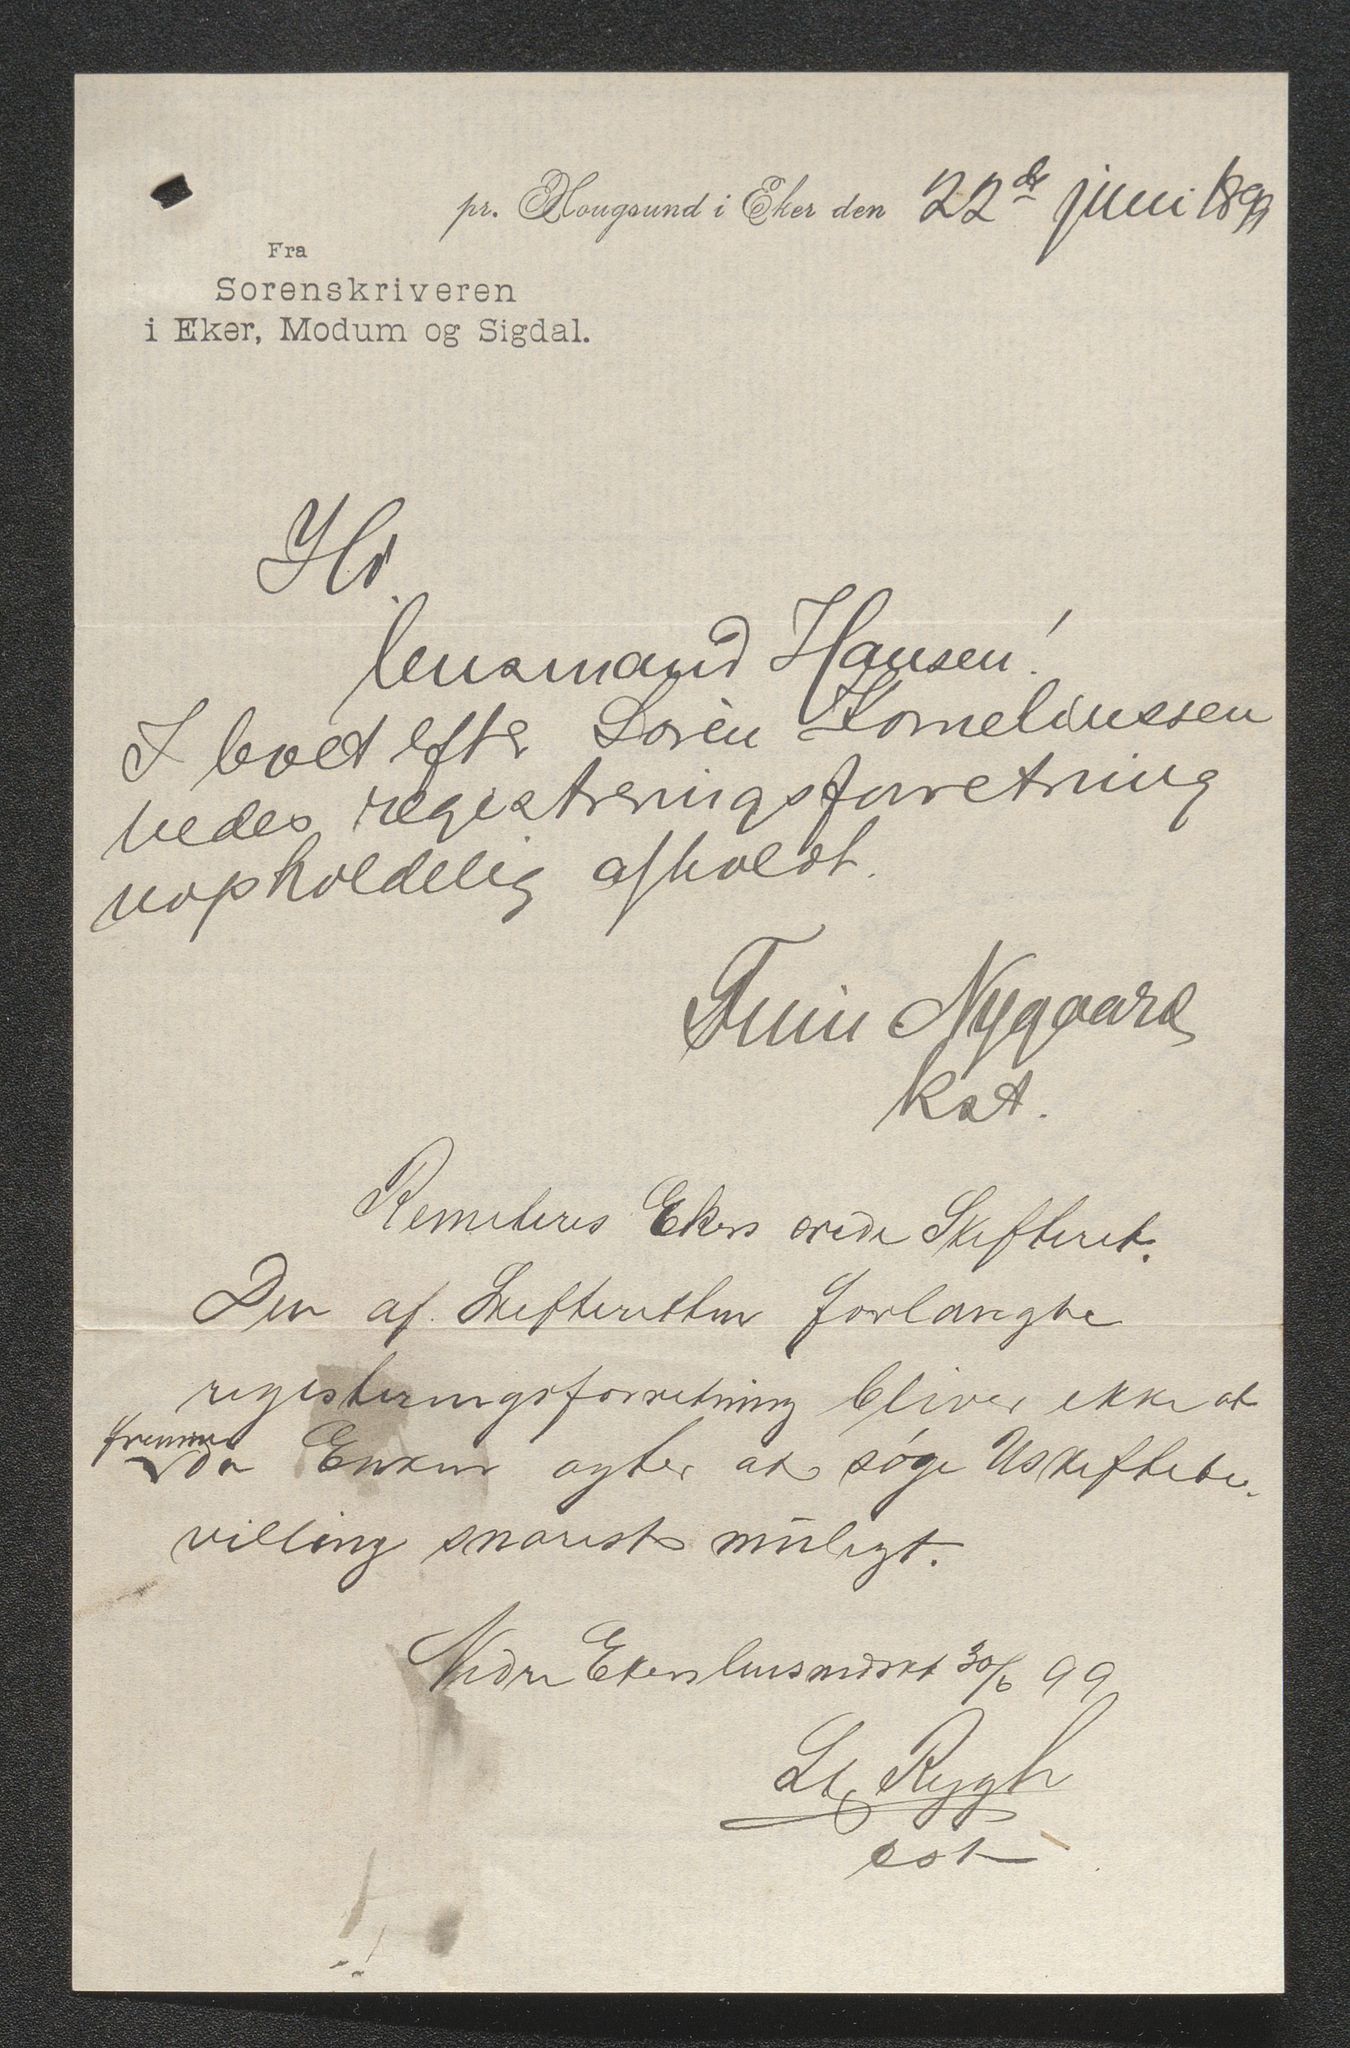 pr. Hougsund i Eker den 22de juni 1899
Fra
Sorenskriveren
i Eker, Modum og Sigdal.
Hr.
lensmand Hansen!
I boet efter Soren Kornelinssen
bedes registreringsforretning
uopholdelig afholdt.
Nygaard
kst.
Remiteres Ekers Skifteret.
Den af Skifteretten forlangte
registeringsforretning bliver ikke at
fremme
da Enken agter at søge Uskiftebe-
villing snarest muligt.
Nedre Ekers lensmdskt 30/6 99
Rygh
cst